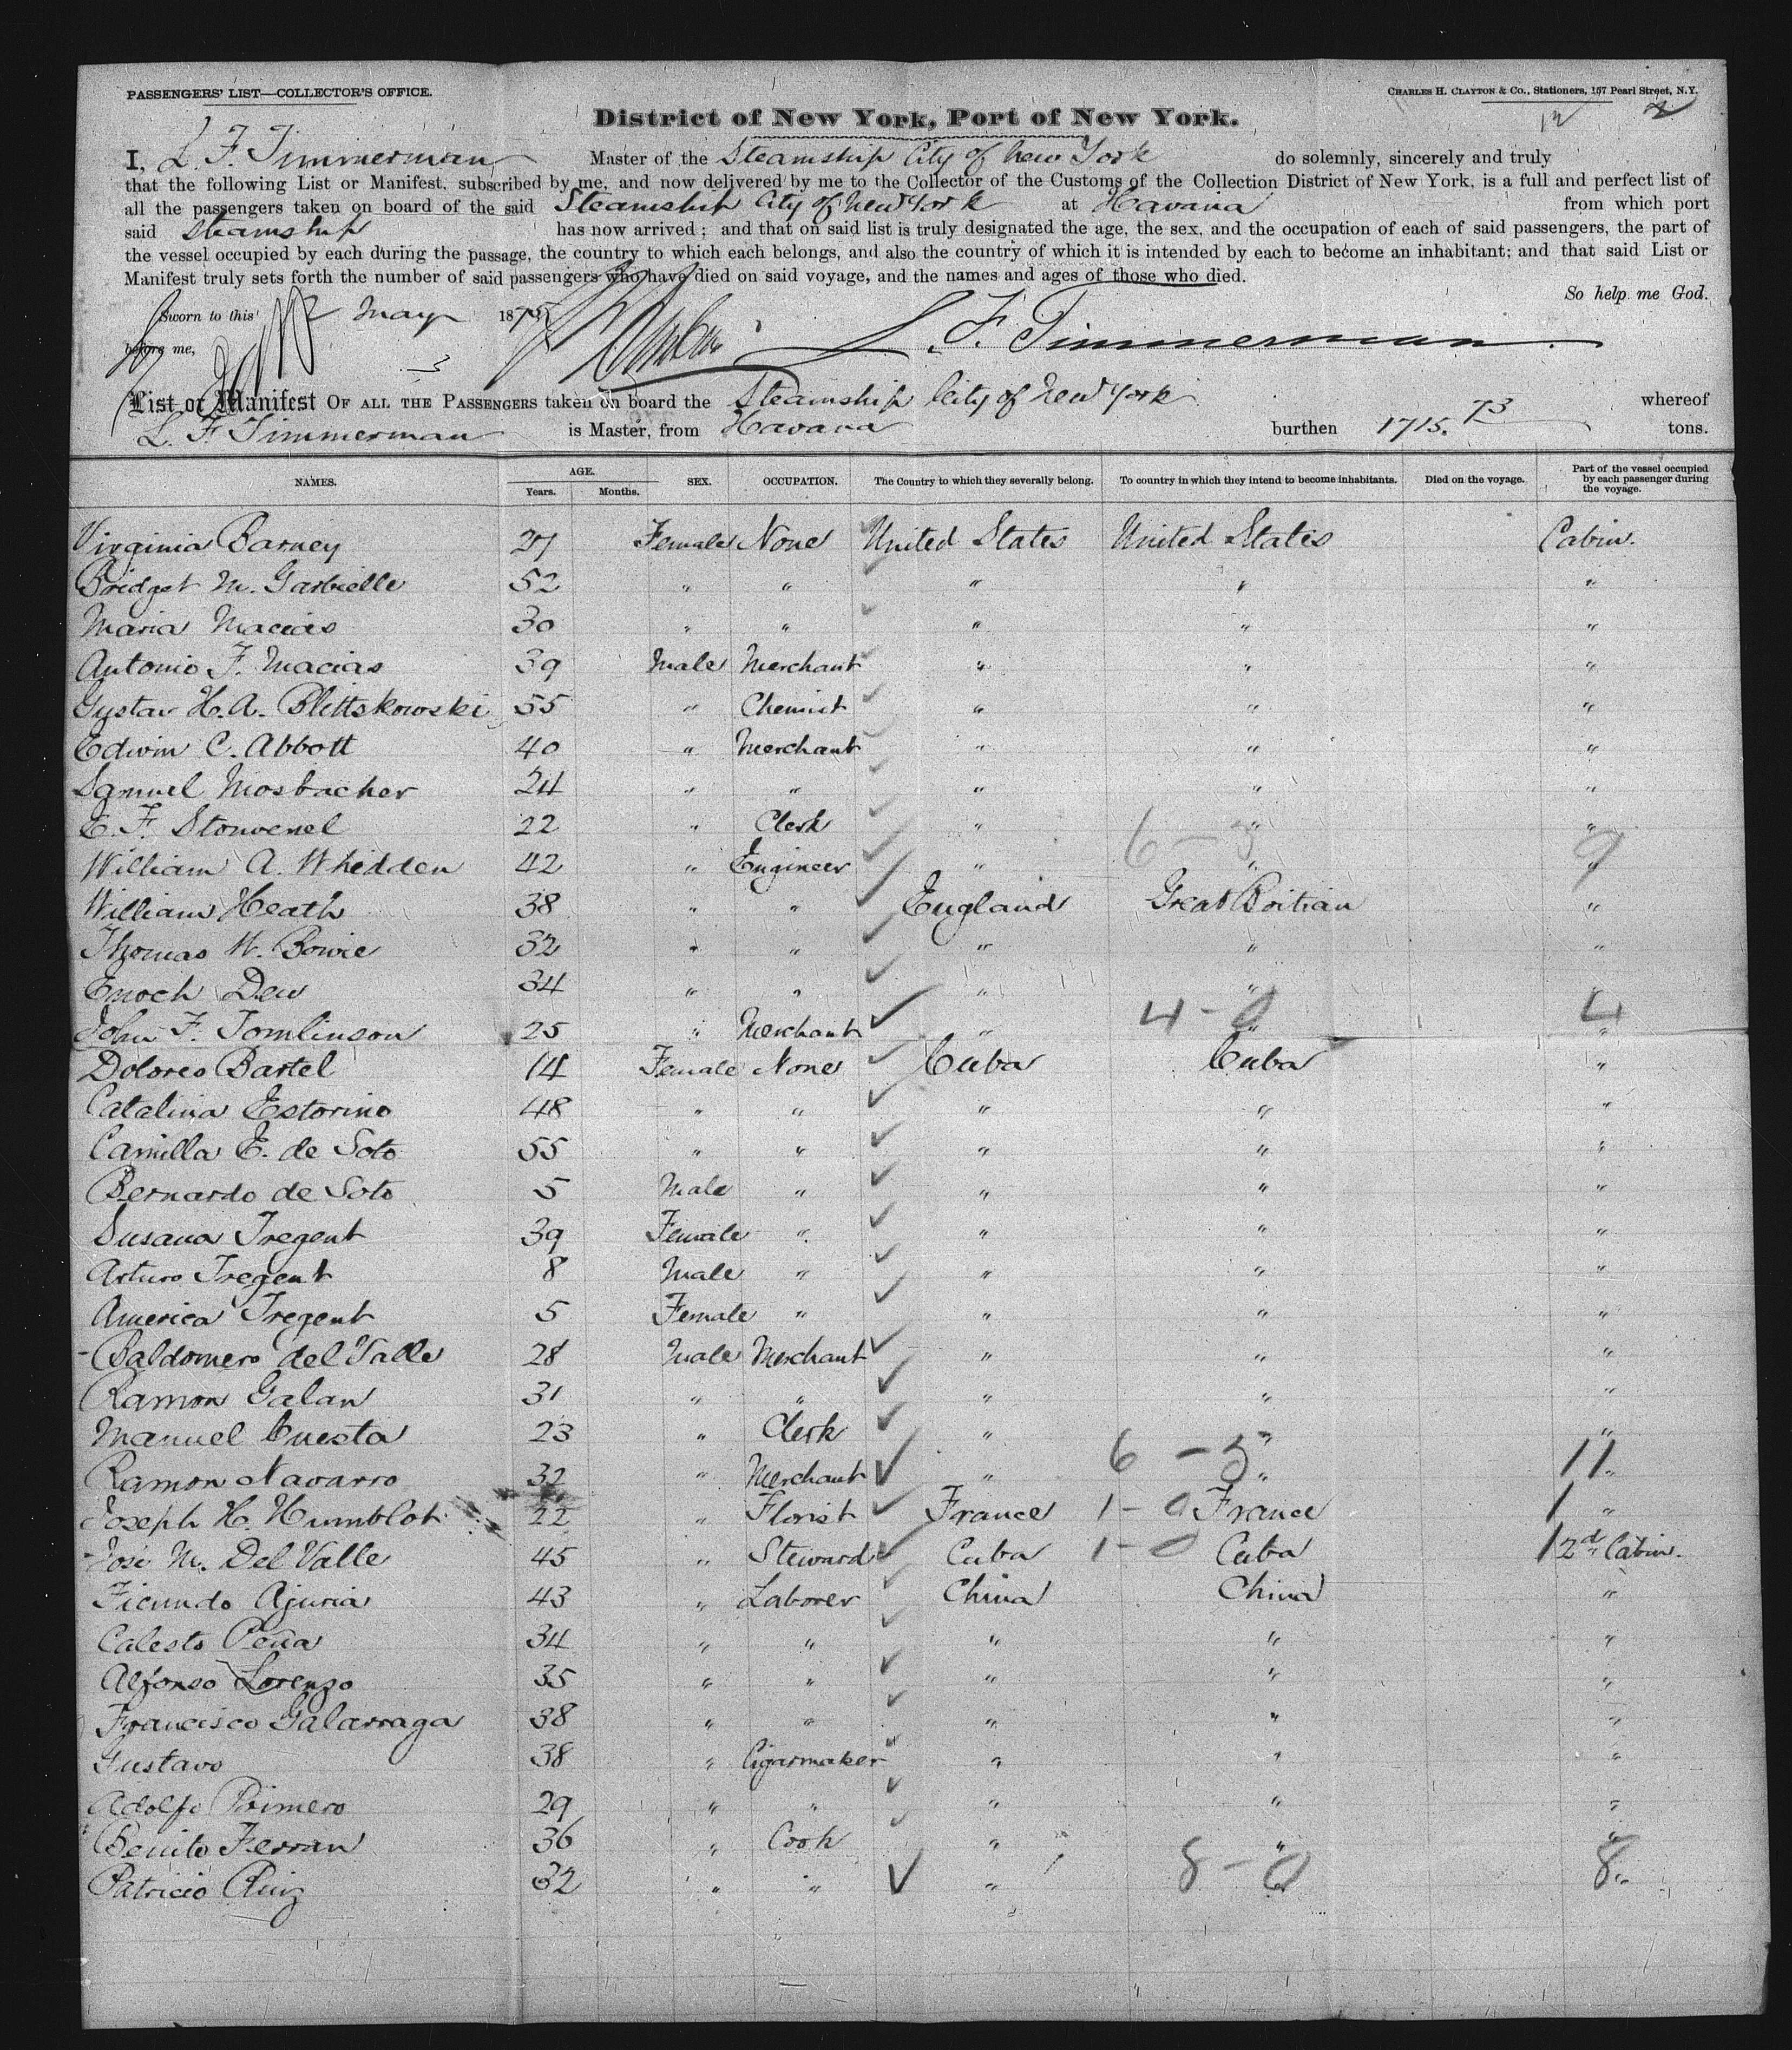 PASSENGERS' LIST—COLLECTOR'S OFFICE.
CHARLES H. CLAYTON & CO., Stationers, 157 Pearl Street, N.Y.
District of New York, Port of New York.
I, L. F. Timmerman Master of the Steamship City of New York do solemnly, sincerely and truly
that the following List or Manifest, subscribed by me, and now delivered by me to the Collector of the Customs of the Collection District of New York, is a full and perfect list of
all the passengers taken on board of the said Steamship City of New York at Havana from which port
said Steamship has now arrived; and that on said list is truly designated the age, the sex, and the occupation of each of said passengers, the part of
the vessel occupied by each during the passage, the country to which each belongs, and also the country of which it is intended by each to become an inhabitant; and that said List or
Manifest truly sets forth the number of said passengers who have died on said voyage, and the names and ages of those who died.
So help me God.
Sworn to this May 1875
before me, L. F. Timmerman
3
List or Manifest OF ALL THE PASSENGERS taken on board the Steamship City of New York whereof
L. F. Timmerman is Master, from Havana burthen 1715.73 tons.
NAMES. AGE. Years. Months. SEX. OCCUPATION. The Country to which they severally belong. To country in which they intend to become inhabitants. Died on the voyage. Part of the vessel occupied by each passenger during the voyage.
Virginia Barney 27 Female None United States United States Cabin.
Bridget M. Garbielle 52 " " " " "
Maria Macias 30 " " " " "
Antonio F. Macias 39 Male Merchant " " "
Gustav H. A. Blittskowski 55 " Chemist " " "
Edwin C. Abbott 40 " Merchant " " "
Samuel Mosbacher 24 " " " " "
E. F. Stouvenel 22 " Clerk " " "
William A. Whidden 42 " Engineer " 6-3 " 9 "
William Heath 38 " " England Great Boitian "
Thomas W. Bowie 32 " " " " "
Enoch Dew 34 " " " " "
John F. Tomlinson 25 " Merchant " 4-0 " 4 "
Dolores Bartel 14 Female None Cuba Cuba "
Catalina Estorino 48 " " " " "
Camilla E. de Soto 55 " " " " "
Bernardo de Soto 5 Male " " " "
Susana Tregent 39 Female " " " "
Arturo Tregent 8 Male " " " "
America Tregent 5 Female " " " "
Baldomero del Valle 28 Male Merchant " " "
Ramon Galan 31 " " " " "
Manuel Cuesta 23 " Clerk " " "
Ramon Navarro 32 " Merchant " 6-5 " 11 "
Joseph H. Humblot 22 " Florist France 1-0 France 1 "
José M. Del Valle 45 " Steward Cuba 1-0 Cuba 1 2d Cabin.
Ficundo Ajuria 43 " Laborer China China "
Calesto Peña 34 " " " " "
Alfonso Lorenzo 35 " " " " "
Francisco Galarraga 38 " " " " "
Gustavo 38 " Cigarmaker " " "
Adolfo Primero 29 " " " " "
Benito Ferran 36 " Cook " " "
Patricio Ruiz 32 " " " 8-0 8 "